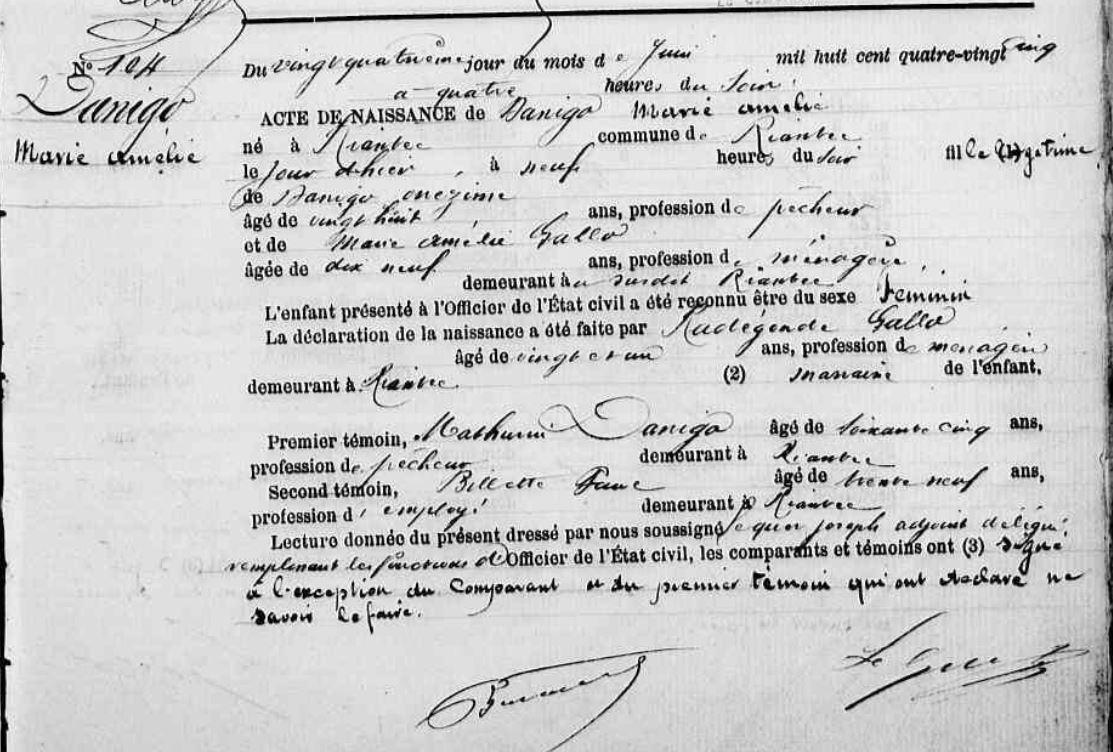 N° 104
Danigo
Marie Amélie
Du vingt quatrième jour du mois de Juin mil huit cent quatre-vingt cinq
a quatre heures du Soir.
ACTE DE NAISSANCE de Danigo Marie Amélie
né à Riantec commune de Riantec
le jour d'hier, à neuf heures du soir fille (1) légitime
de Danigo onezime
âgé de vingt huit ans, profession de pêcheur
et de Marie Amélie Gallo
âgée de dix neuf ans, profession de ménagère,
demeurant à susdit Riantec
L'enfant présenté à l'Officier de l'État civil a été reconnu être du sexe féminin
La déclaration de la naissance a été faite par Radégonde Gallo
âgé de vingt et un ans, profession de ménagère
demeurant à Riantec (2) marraine de l'enfant,
Premier témoin, Mathurin Danigo âgé de soixante cinq ans,
profession de pêcheur demeurant à Riantec
Second témoin, Billette âgé de trente neuf ans,
profession d'employé demeurant à Riantec
Lecture donnée du présent dressé par nous soussigné Le quer joseph adjoint délégué
remplissant les fonctions d'Officier de l'État civil, les comparants et témoins ont (3) signé
à l'exception du Comparant et du premier témoin qui ont déclaré ne
savoir le faire.
Le Quer